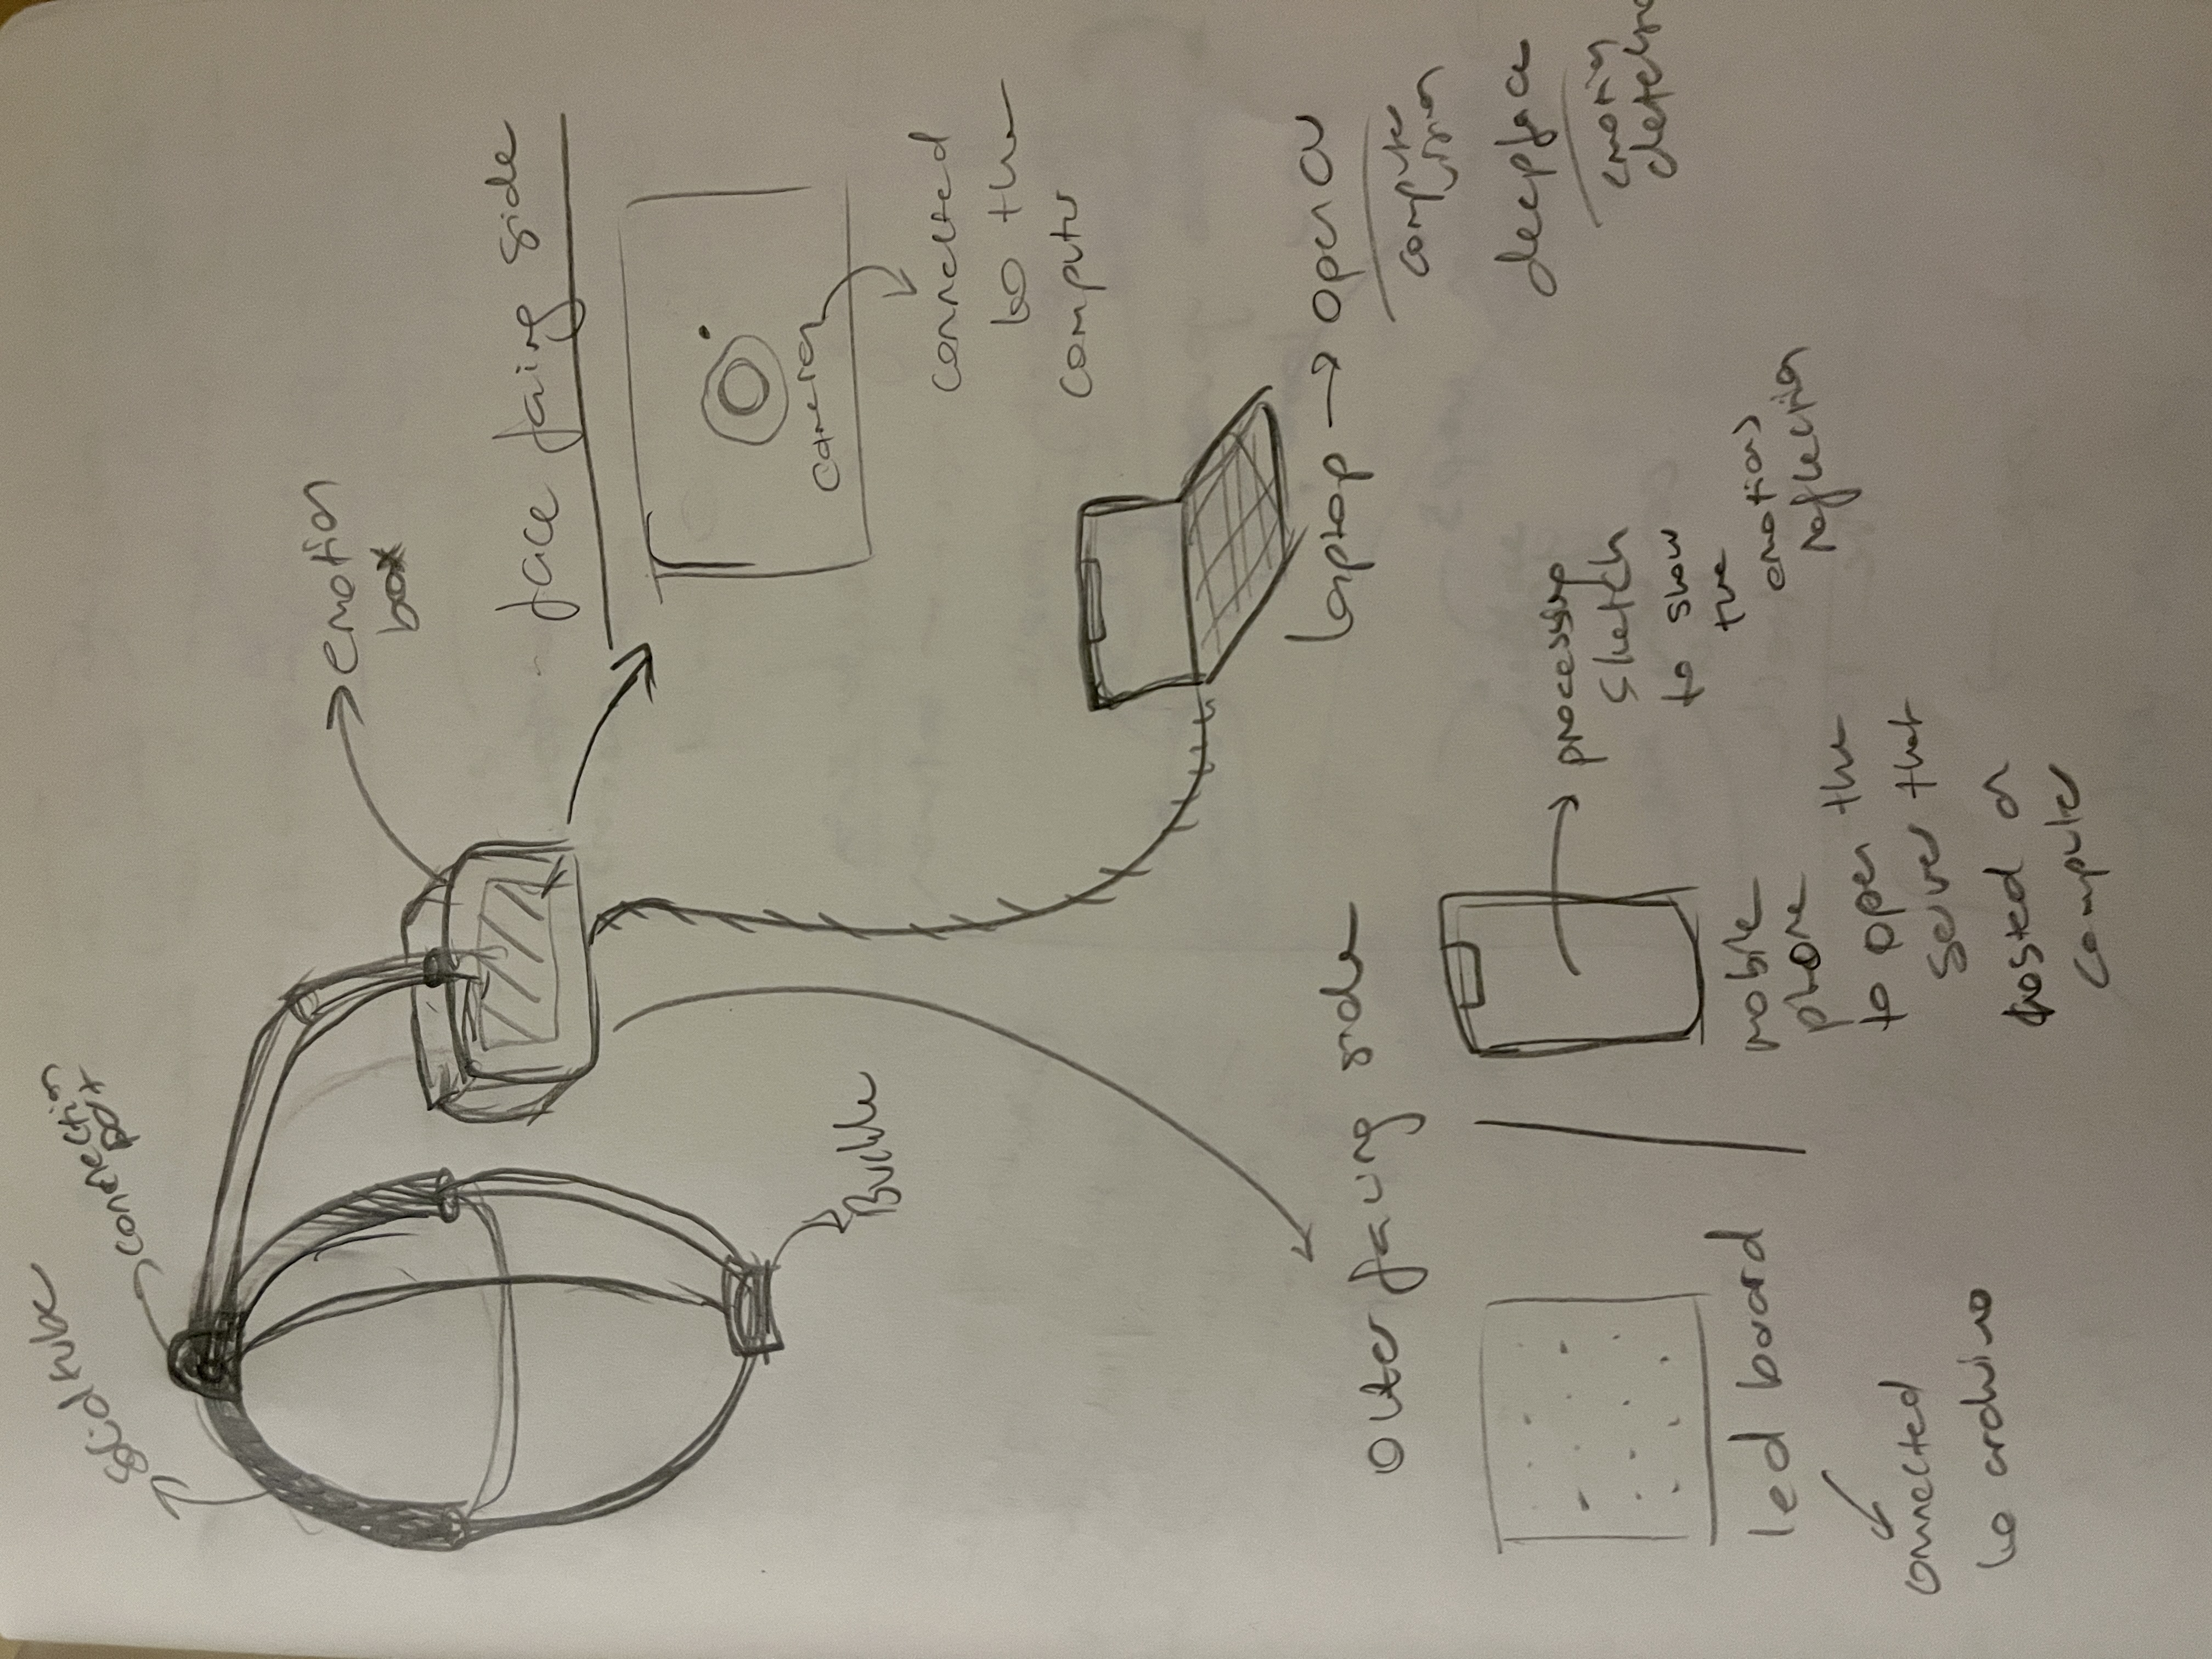 solid tube
connection
emotion
box
face facing side
camera
connected
to the
computer
Buckle
laptop → open cv
computer
vision
deepface
emotion
detection
outer facing side
led board
connected
to arduino
mobile
phone
to open the
server that
hosted on
computer
processing
sketch
to show
the
emotion
reflection